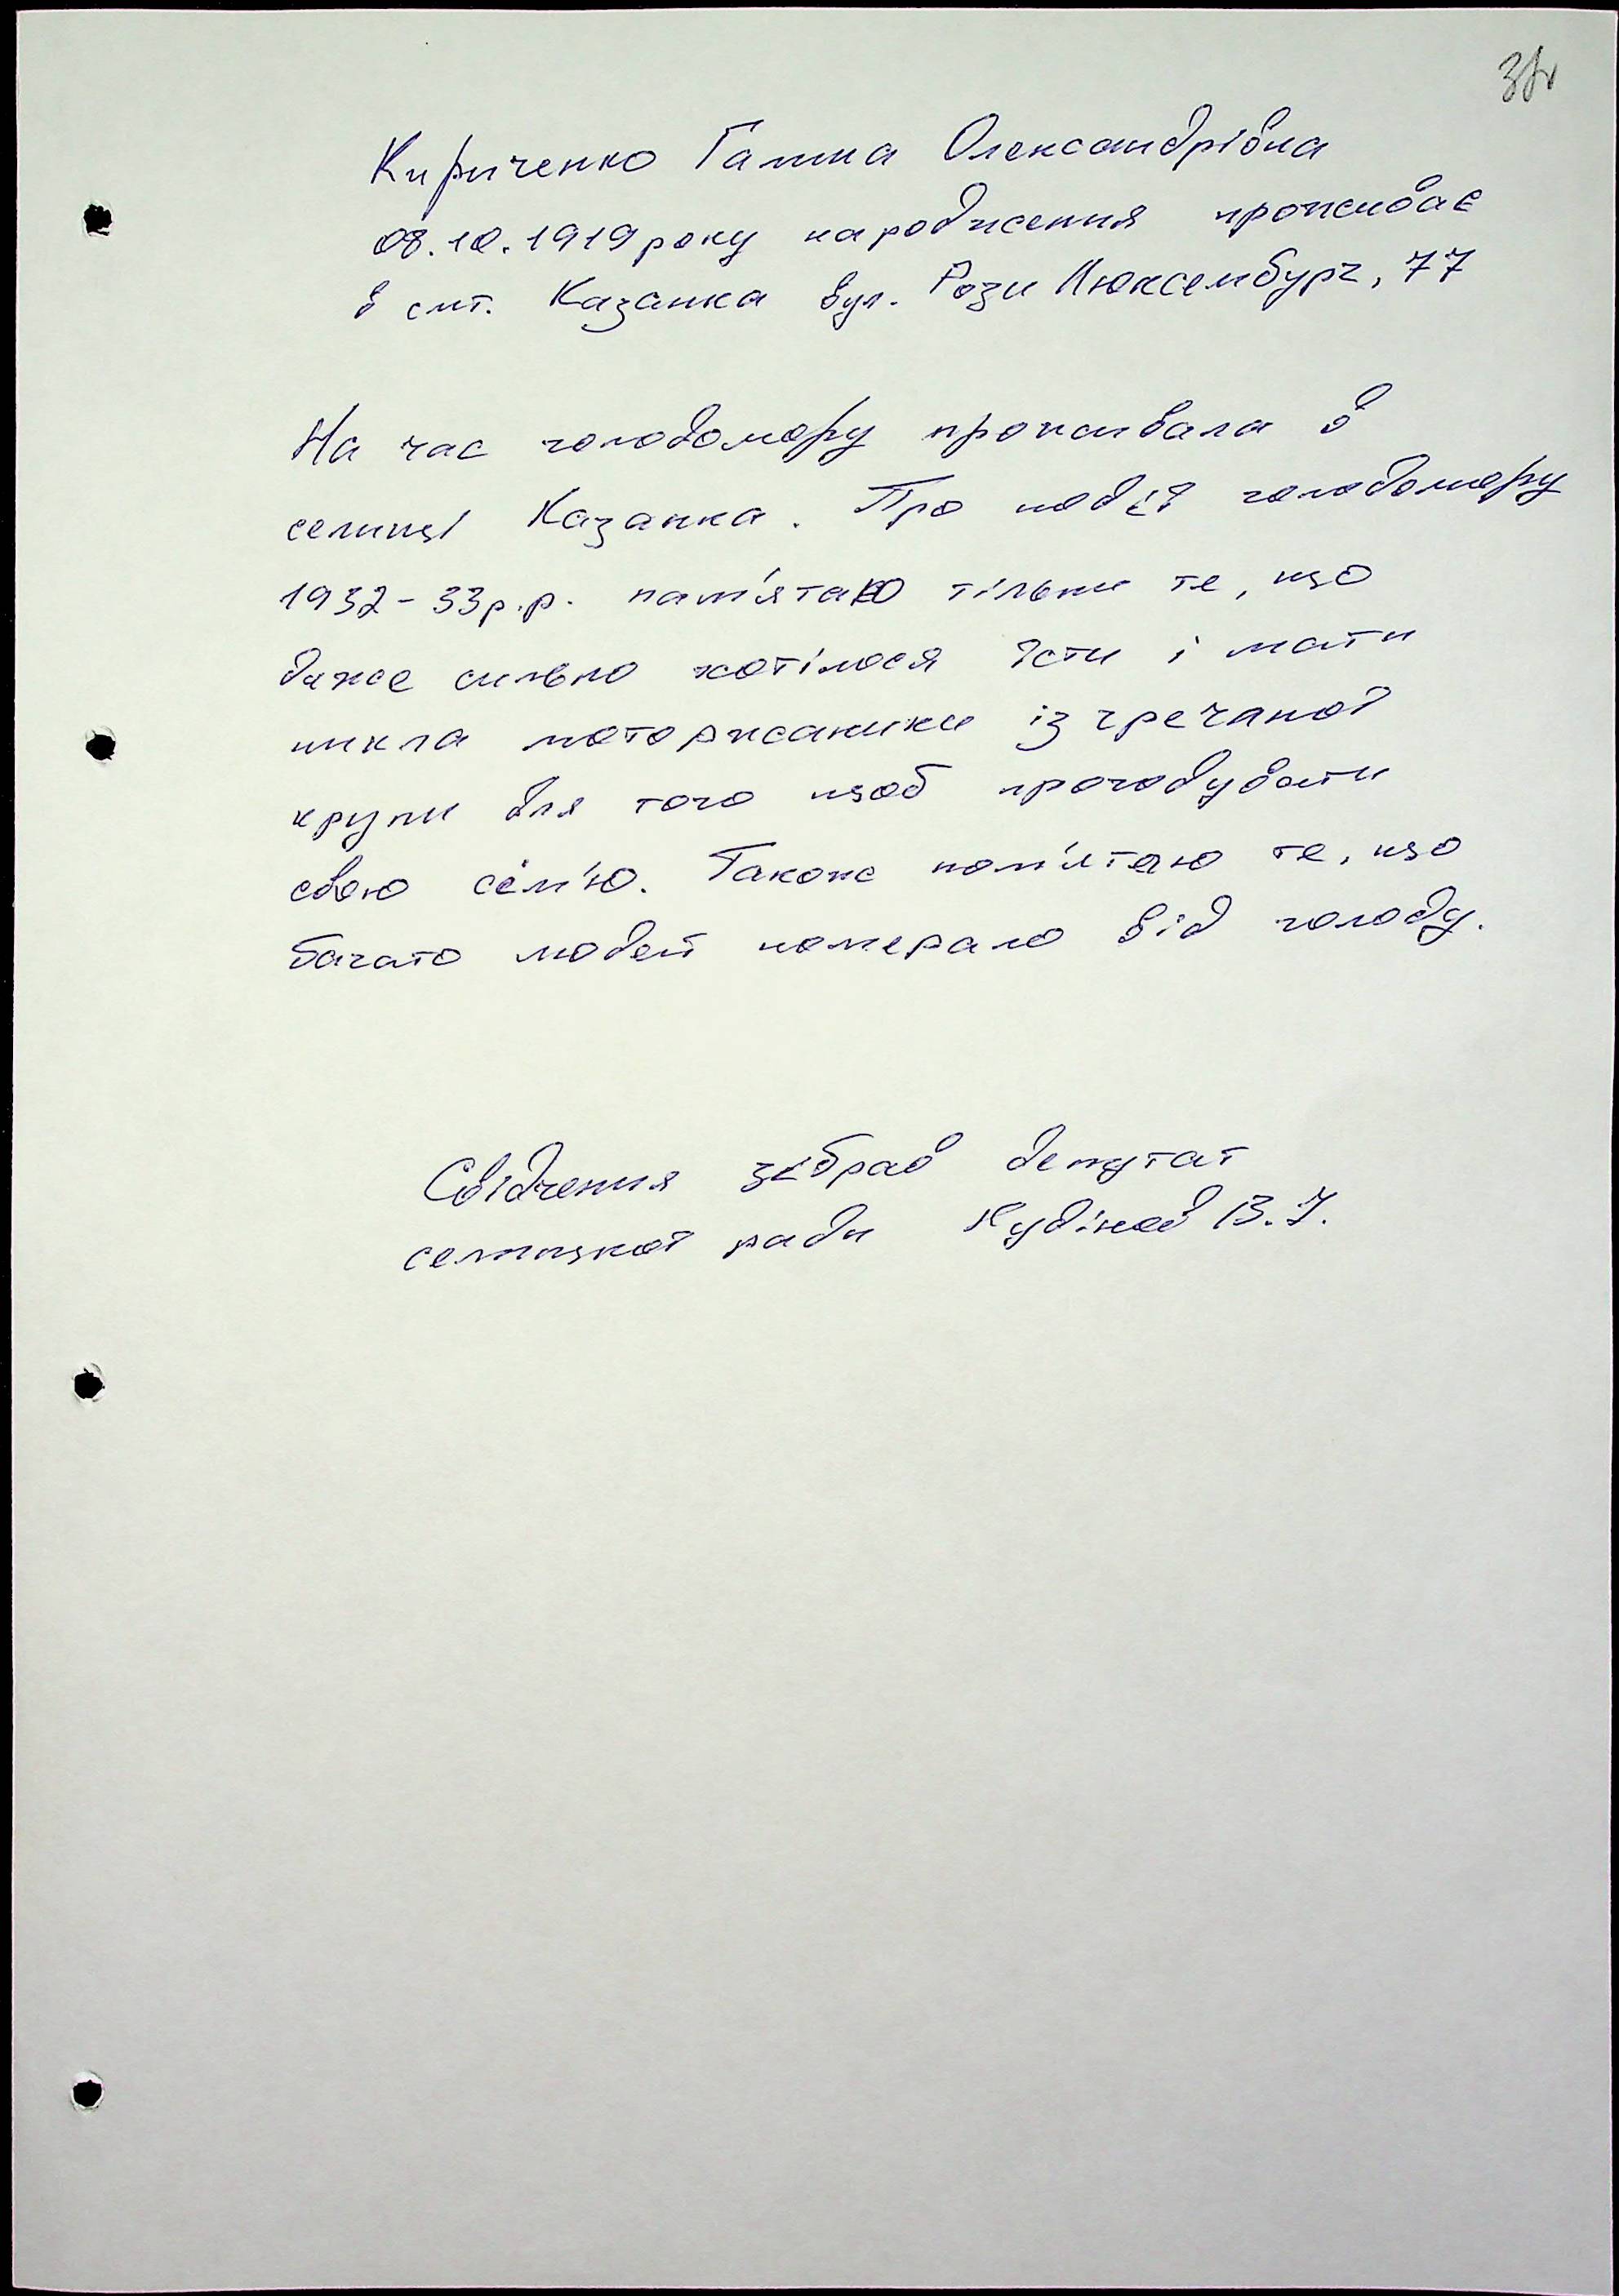 Кириченко Галина Олександрівна
08.10.1919 року народження проживає
в смт. Казанка вул. Рози Люксембург, 77
На час голодомору проживала в
селищі Казанка. Про події голодомору
1932-33р.р. пам'ятаю тільки те, що
дуже сильно хотілося їсти і мати
пекла коржики із гречаної
крупи для того щоб прогодувати
свою сем'ю. Також пам'ятаю те, що
багато людей померало від голоду.
Свідчення зібрав депутат
селищної ради Кудінов В.І.